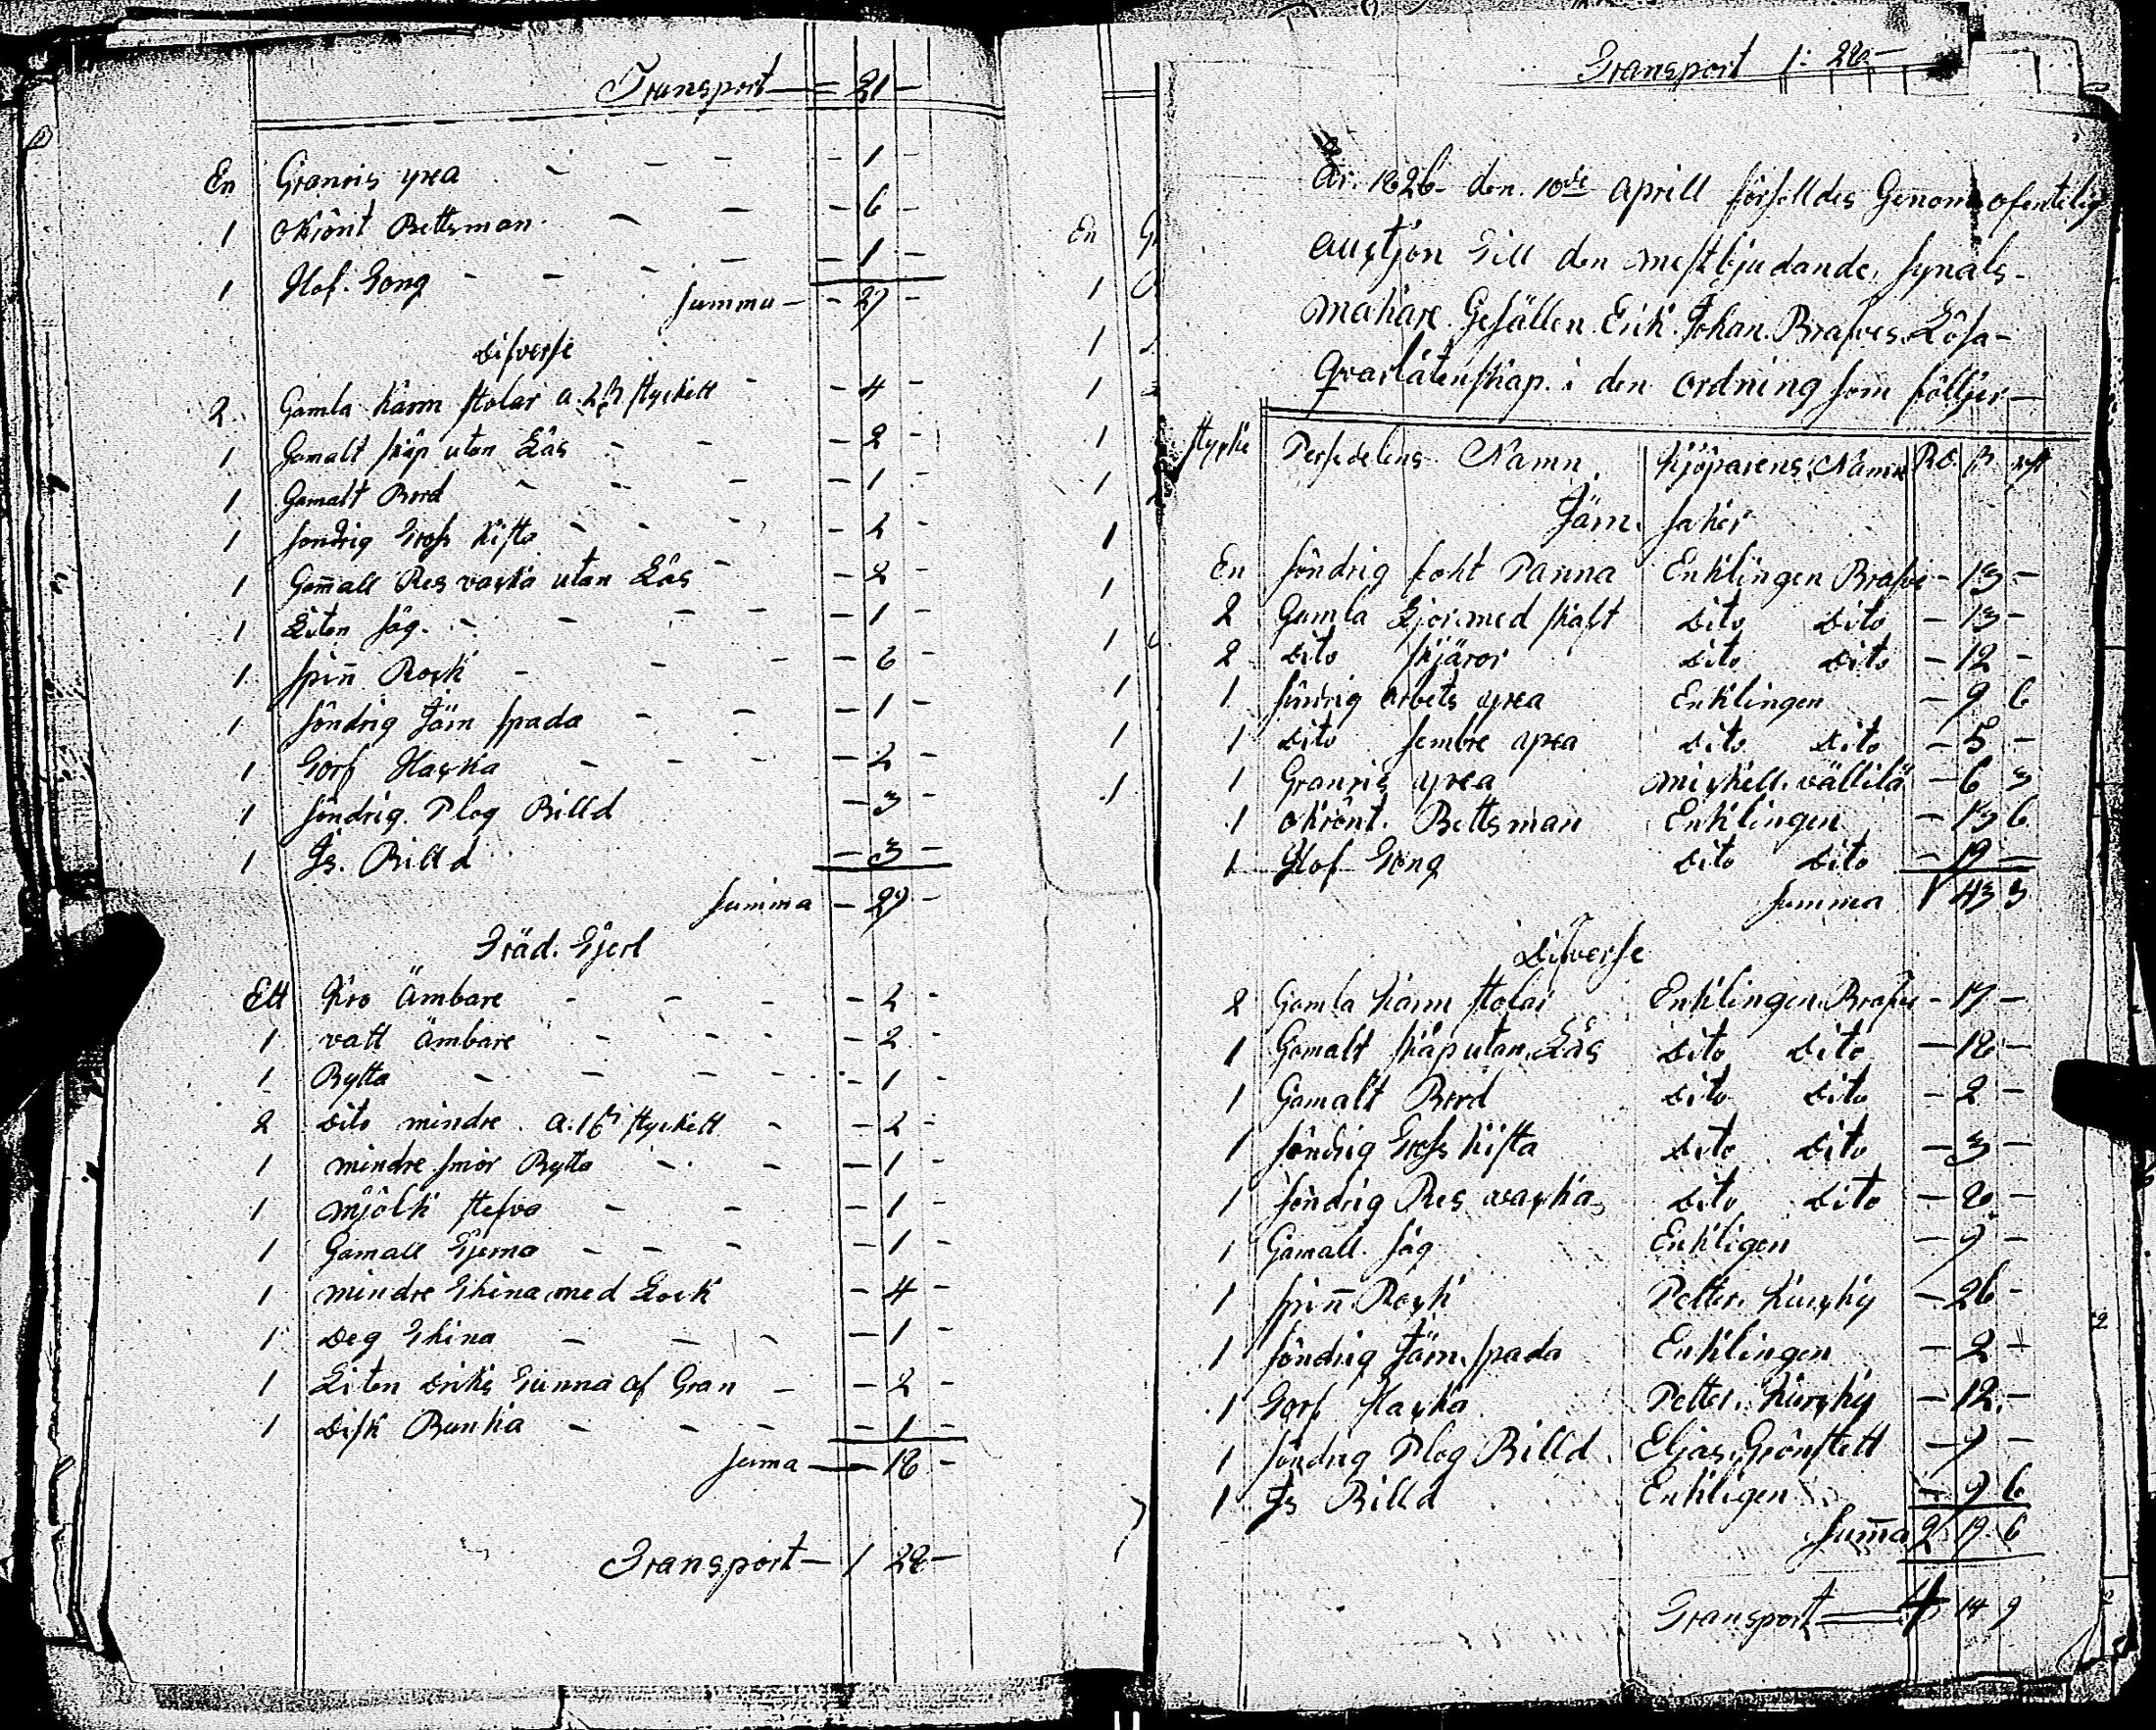 Transport — 21 —
En Granris yxa - - - 1 -
1 Okrönt Bettsman - - - 6 -
1 Hof Tong - - - - 1 -
Summa - - 27 -
Diverse
2. Gamla Karm stolar a. 2 ß styckett - - 4 -
1 Gamalt skåp utan Lås - - - 2 -
1 Gamalt Bord - - - - 1 -
1 söndrig Gross kista - - - - 2 -
1 Gam̄all Res vaska utan Lås - - 2 -
1 Liten såg. - - - - - 1 -
1 spin̄ Rock - - - - 6 -
1 söndrig Järn spada - - - 1 -
1 Torf Hacka - - - - 2 -
1 söndrig Plog Billd - 3 -
1 Js. Billd - 3 -
Summa - 29 -
Träd. Kjerl
Ett Ämbare - - - - 2 -
1 vatt ämbare - - - - 2 -
1 Bytta - - - - - 1 -
2 Dito mindre. a. 1 ß styckett - - 2 -
1 mindre smör Bytta - - - 1 -
1 mjölk stefva - - - 1 -
1 Gamall Tjerna - - - - 1 -
1 mindre Thina med Lock - 4 -
1 Deg Thina - - - - 1 -
1 Liten Driks Tunna af Gran - - 2 -
1 Disk Bunka - - - - 1 -
Suma — 18 -
Transport — 1 28 —
Transport 1: 28 —
År. 1826 den. 10de Aprill förselldes Genom ofentelig
Auction till den mestbjudande, synåls-
makare Gesällen Erik Johan Brasves Lösa-
Qvarlåtenskap. i den ordning som följer —
stycke Persedelens Namn. Kjöparens Namn Ro. ß
Järn. saker
En söndrig Panna Enklingen Brasve - 13 -
2 Gamla med skaft Dito Dito - 13 -
2 Dito skjäror Dito Dito - 12 -
1 söndrig arbets yxa Enklingen - 9 6
1 Dito sembre yxa Dito Dito - 5 -
1 Granris yxa Mickell. vällilä - 6 3
1 Okrönt. Bettsman Enklingen - 13 6
1 Hof Tong Dito Dito - 19 -
Summa 1 43 3
Diverse
2 Gamla Karm stolar Enklingen Brasve - 17 -
1 Gamalt skåp utan Lås Dito Dito - 18 -
1 Gamalt Bord Dito Dito - 2 -
1 söndrig Gross kista Dito Dito - 3 -
1 söndrig Res vaska Dito Dito - 8 -
1 Gamall. såg Enkligen - 9 -
1 spin̄ Rock Petter. - 26 -
1 söndrig Järn. spada Enklingen - 2 -
1 Torf Hacka Petter. - 12 -
1 söndrig Plog Billd. Eljas Grönstett - 9 -
1 Js Billd Enkligen - 9 6
Sum̄a 2 19 6
Transport — 4 14 9